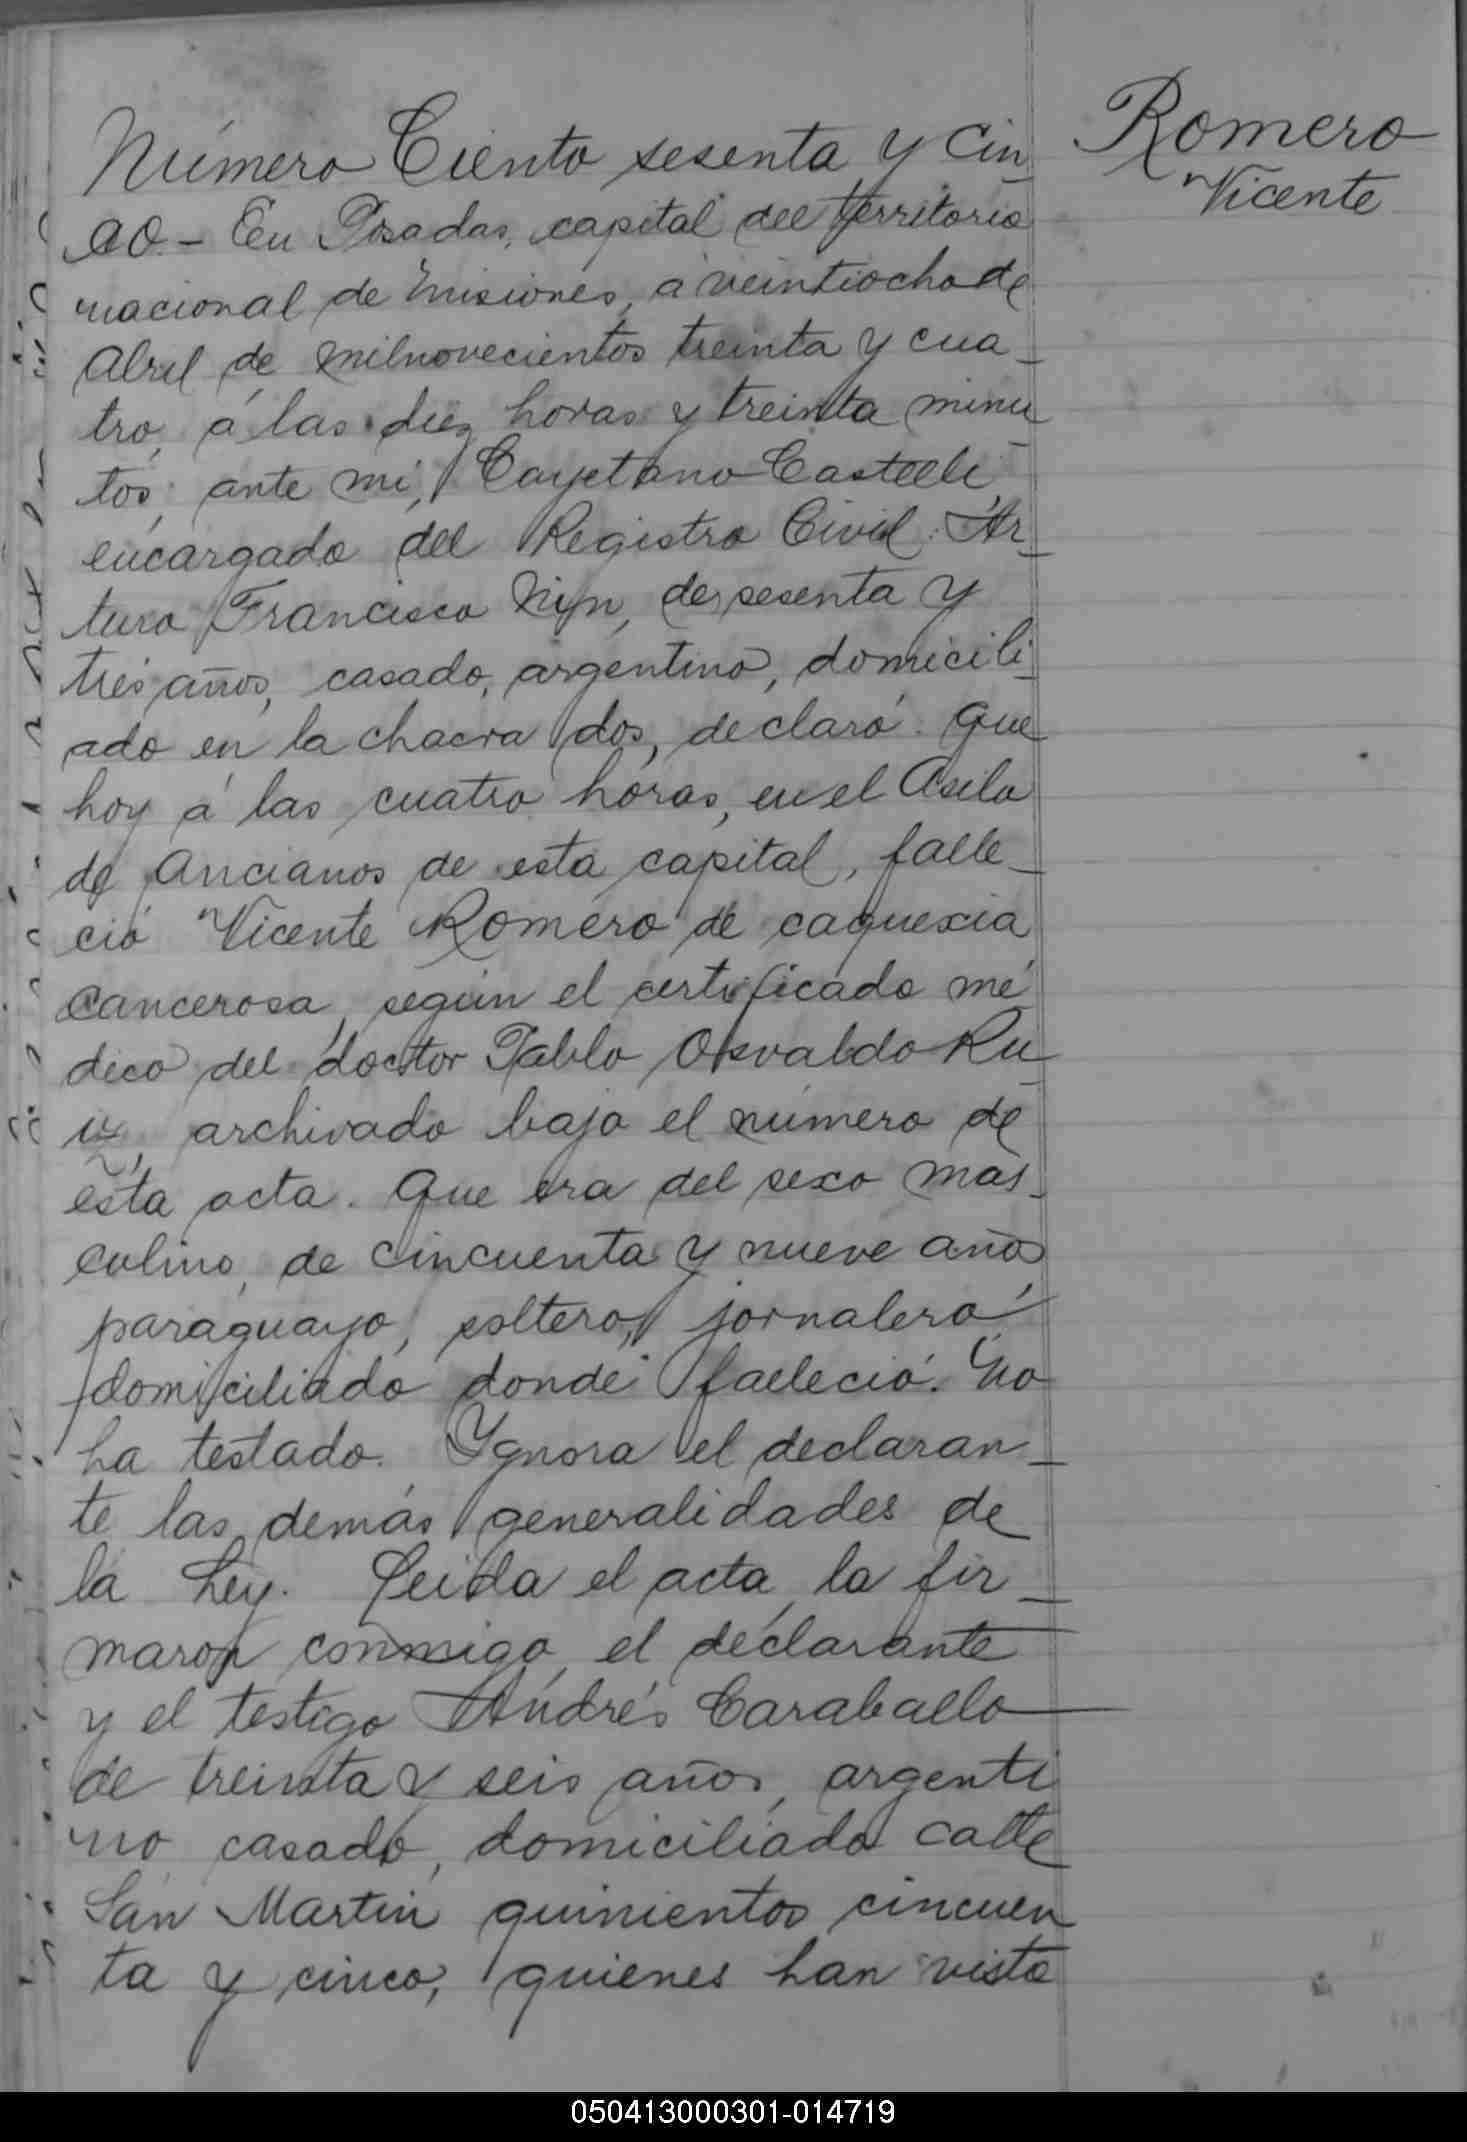 Romero
Vicente
Número Ciento sesenta y cin
co.- En Posadas, capital del territorio
nacional de Misiones, á veintiocho de
Abril de milnovecientos treinta y cua-
tro, á las diez horas y treinta minu
tos, ante mi, Cayetano Castelli,
encargado del Registro Civil: Ar-
turo Francisco Nip, de sesenta y
tres años, casado, argentino, domicili-
ado en la chacra dos, declaró: Que
hoy á las cuatro horas, en el Asilo
de Ancianos de esta capital, falle-
ció Vicente Romero de caquexia
cancerosa, según el certificado mé
dico del doctor Pablo Osvaldo Ru-
iz, archivado bajo el número de
esta acta. Que era del sexo mas-
culino, de cincuenta y nueve años,
paraguayo, soltero, jornalero,
domiciliado donde falleció. No
ha testado. Ygnora el declaran-
te las demás generalidades de
la Ley. Leida el acta, la fir-
maron conmigo, el declarante
y el testigo Andrés Caraballo
de treinta y seis años, argenti
no, casado, domiciliado calle
San Martin quinientos cincuen
ta y cinco, quienes han visto
050413000301-014719